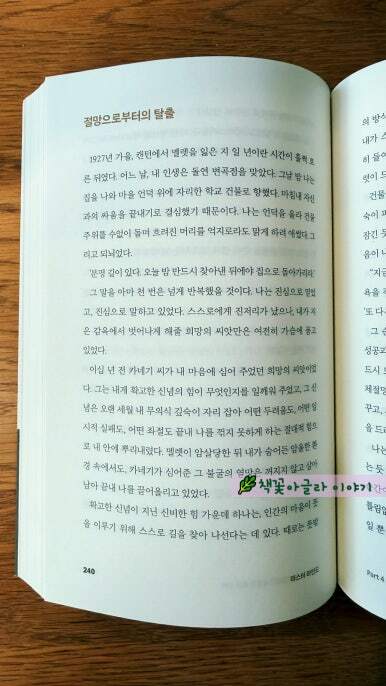 절망으로부터의 탈출
1927년 가을, 캔턴에서 멜렛을 잃은 지 일 년이란 시간이 훌쩍 흐
른 뒤였다. 어느 날, 내 인생은 돌연 변곡점을 맞았다. 그날 밤 나는
집을 나와 마을 언덕 위에 자리한 학교 건물로 향했다. 마침내 자신
과의 싸움을 끝내기로 결심했기 때문이다. 나는 언덕을 올라 건물
주위를 수없이 돌며 흐려진 머리를 억지로라도 맑게 하려 애썼다. 그
리고 되뇌었다.
'분명 길이 있다. 오늘 밤 반드시 찾아낸 뒤에야 집으로 돌아가리라.'
그 말을 아마 천 번은 넘게 반복했을 것이다. 나는 진심으로 말했
고, 진심으로 말하고 있었다. 스스로에게 진저리가 났으나, 내가 지
은 감옥에서 벗어나게 해줄 희망의 씨앗만은 여전히 가슴에 품고
있었다.
이십 년 전 카네기 씨가 내 마음에 심어 주었던 희망의 씨앗이었
다. 그는 내게 확고한 신념의 힘이 무엇인지를 일깨워 주었고, 그 신
념은 오랜 세월 내 무의식 깊숙이 자리 잡아 어떤 두려움도, 어떤 일
시적 실패도, 어떤 좌절도 끝내 나를 꺾지 못하게 하는 절대적 힘으
로 내 안에 뿌리내렸다. 멜렛이 암살당한 뒤 내가 숨어든 암울한 환
경 속에서도, 카네기가 심어준 그 불굴의 열망은 꺼지지 않고 살아
남아 끝내 나를 끌어올리고 있었다.
책꽃아글라 이야기
확고한 신념이 지닌 신비한 힘 가운데 하나는, 인간의 마음이 뜻
을 이루기 위해 스스로 길을 찾아 나선다는 데 있다. 때로는 뜻밖
240
마스터 마인드
의 방식
내가 스
히 들어
렛이 드
건물
잠긴 듯
음이 나
"지금
욕을
'또 다
그 순
성공과
드시
체절망
꾸고,
을 드
나는
음이
간이
틀림없
일 뿐
Part 4